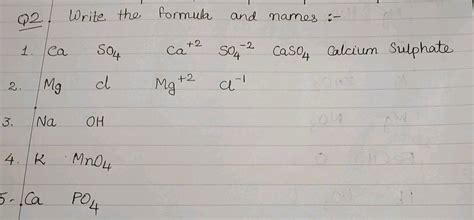 Q2. Write the formula and names :-
1. Ca SO4 Ca+2 SO4-2 CaSO4 Calcium Sulphate
2. Mg Cl Mg+2 Cl-1
3. Na OH
4. K MnO4
5. Ca PO4